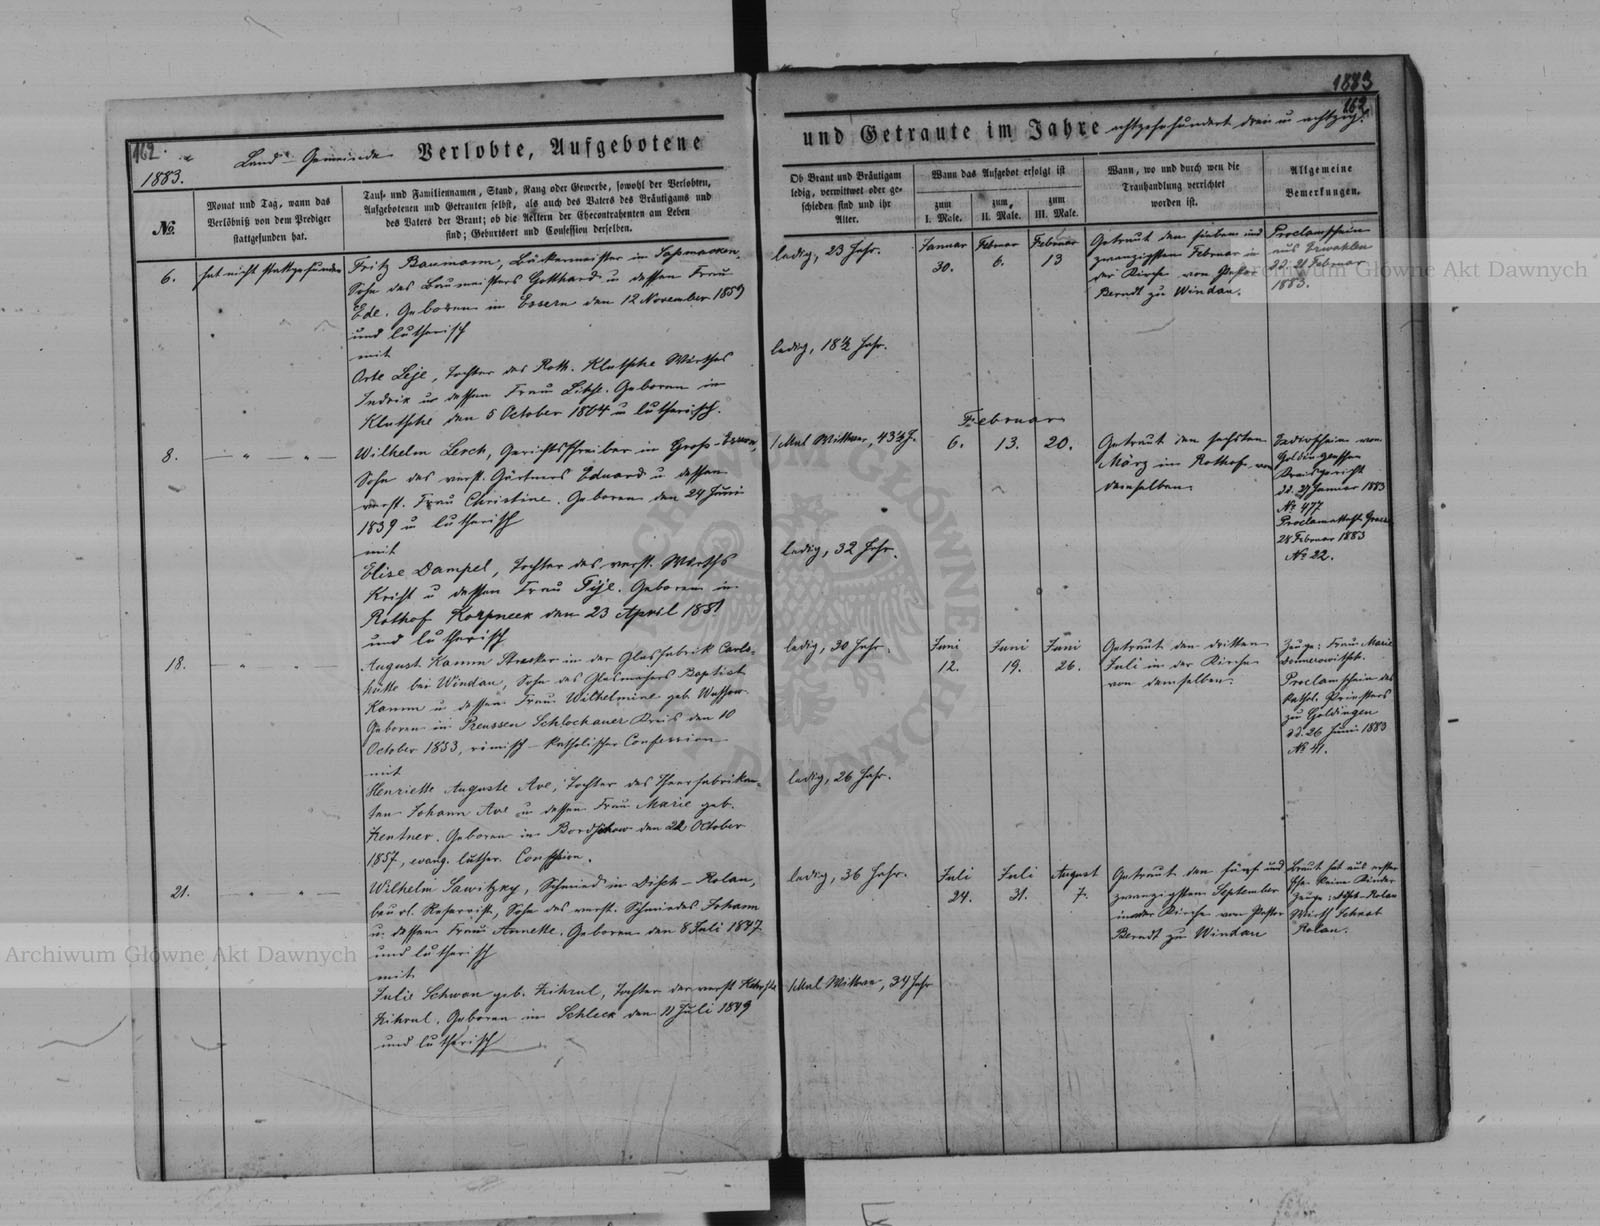 162.
1883.
Land-Gemeinde Verlobte, Aufgebotene
No.
Monat und Tag, wann das
Verlöbniß von dem Prediger
stattgefunden hat.
Tauf- und Familiennamen, Stand, Rang oder Gewerbe, sowohl der Verlobten,
Aufgebotenen und Getrauten selbst, als auch des Vaters des Bräutigams und
des Vaters der Braut; ob die Aeltern der Ehecontrahenten am Leben
sind; Geburtsort und Confession derselben.
6.
hat nicht stattgefunden
Fritz Baumann, Bäckermeister in Sassmacken,
Sohn des Baumeisters Gotthard u dessen Frau
Ede. Geboren in Essern den 12 November 1859
und lutherisch
mit
Orte Leje, Tochter des Roth. Klutsche Wirthes
Indrik u dessen Frau Libse. Geboren in
Klutsche den 5 October 1864 u lutherisch.
8.
— " — " —
Wilhelm Lerch, Gerichtsschreiber in Gross-Essern,
Sohn des verst. Gärtners Eduard u dessen
verst. Frau Christine. Geboren den 24 Juni
1839 u lutherisch
mit
Elise Dampel, Tochter des verst. Wirths
Krist u dessen Frau Tije. Geboren in
Rothof Korpneek den 23 April 1851
und lutherisch
18.
— " — " —
August Kamm Strecker in der Glasfabrik Carls-
hütte bei Windau, Sohn des Glasmachers Baptist
Kamm u dessen Frau Wilhelmine geb.
Geboren in Preussen Schlochauer Kreis den 10
October 1853, römisch-katholischer Confession
mit
Henriette Auguste Ave, Tochter des Theerfabrikan-
ten Johann Ave u dessen Frau Marie geb.
Kentner. Geboren in den 22 October
1857, evang. luther. Confession.
21.
— " — " —
Wilhelm Sawitzky, Schmied in Disch-Rolan,
beurl. Reservist, Sohn des verst. Schmiedes Johann
u. dessen Frau Annette. Geboren den 8 Juli 1847
und lutherisch
mit
Julie Schwan geb. Zihrul, Tochter des verst.
Zihrul. Geboren in Schleck den 11 Juli 1849
und lutherisch
1883
162.
und Getraute im Jahre achtzehnhundert drei u achtzig.
Ob Braut und Bräutigam
ledig, verwittwet oder ge-
schieden sind und ihr
Alter.
Wann das Aufgebot erfolgt ist
zum
I. Male.
zum
II. Male.
zum
III. Male.
Wann, wo und durch wen die
Trauhandlung verrichtet
worden ist.
Allgemeine
Bemerkungen.
ledig, 23 Jahr.
Januar
30.
Februar
6.
Februar
13
Getraut den sieben und
zwanzigsten Februar in
der Kirche von Pastor
Berndt zu Windau.
Proclamschein
aus Erwahlen
d.d. 21 Februar
1883.
ledig, 18½ Jahr.
1 Mal Wittwer, 43½ J.
Februar
6.
13.
20.
Getraut den sechsten
März im Rothofe von
demselben.
Goldingenschen
Kreisgericht
d.d. 27 Januar 1883
No 477
28 Februar 1883
No 22.
ledig, 32 Jahr.
ledig, 30 Jahr.
Juni
12.
Juni
19.
Juni
26.
Getraut den dritten
Juli in der Kirche
von demselben.
Zeuge: Frau Marie
Proclamschein des
kathol. Priesters
zu Goldingen
d.d. 26 Juni 1883
No 41.
ledig, 26 Jahr.
ledig, 36 Jahr.
Juli
24.
Juli
31.
August
7.
Getraut den fünf und
zwanzigsten September
in der Kirche von Pastor
Berndt zu Windau
Braut hat aus erster
Ehe keine Kinder
Zeuge: Disch-Rolan
Wirth
Rolan.
1 Mal Wittwe, 34 Jahr
Archiwum Główne Akt Dawnych
Archiwum Główne Akt Dawnych
ARCHIWUM GŁÓWNE AKT DAWNYCH